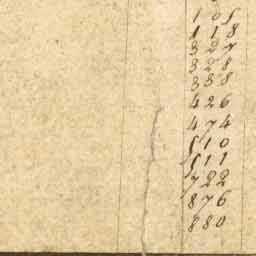 105
118
327
328
338
426
474
510
511
722
876
880